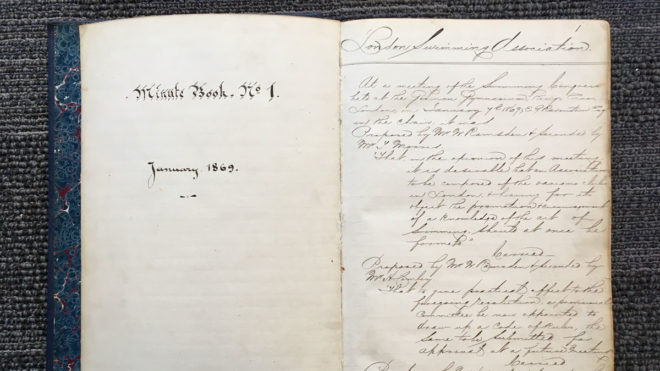 Minute Book. No 1.
January 1869.
London Swimming Association.
At a meeting of the Swimming Congress
held at the German Gymnasium
London on January 7th 1869, E. G. Ravenstein Esq
in the chair, it was
Proposed by Mr W. Ramsden & seconded by
Mr T. Morris
"That in the opinion of this meeting
it is desirable that an Association
to be composed of the various clubs
in London & having for its
object the promotion & encouragement
of a knowledge of the art of
Swimming should at once be
formed"
Carried
Proposed by Mr W. Ramsden & seconded by
Mr H.
"That to give practical effect to the
foregoing resolution a provisional
Committee be now appointed to
draw up a Code of Rules, the
same to be submitted for
approval at a future meeting
Carried